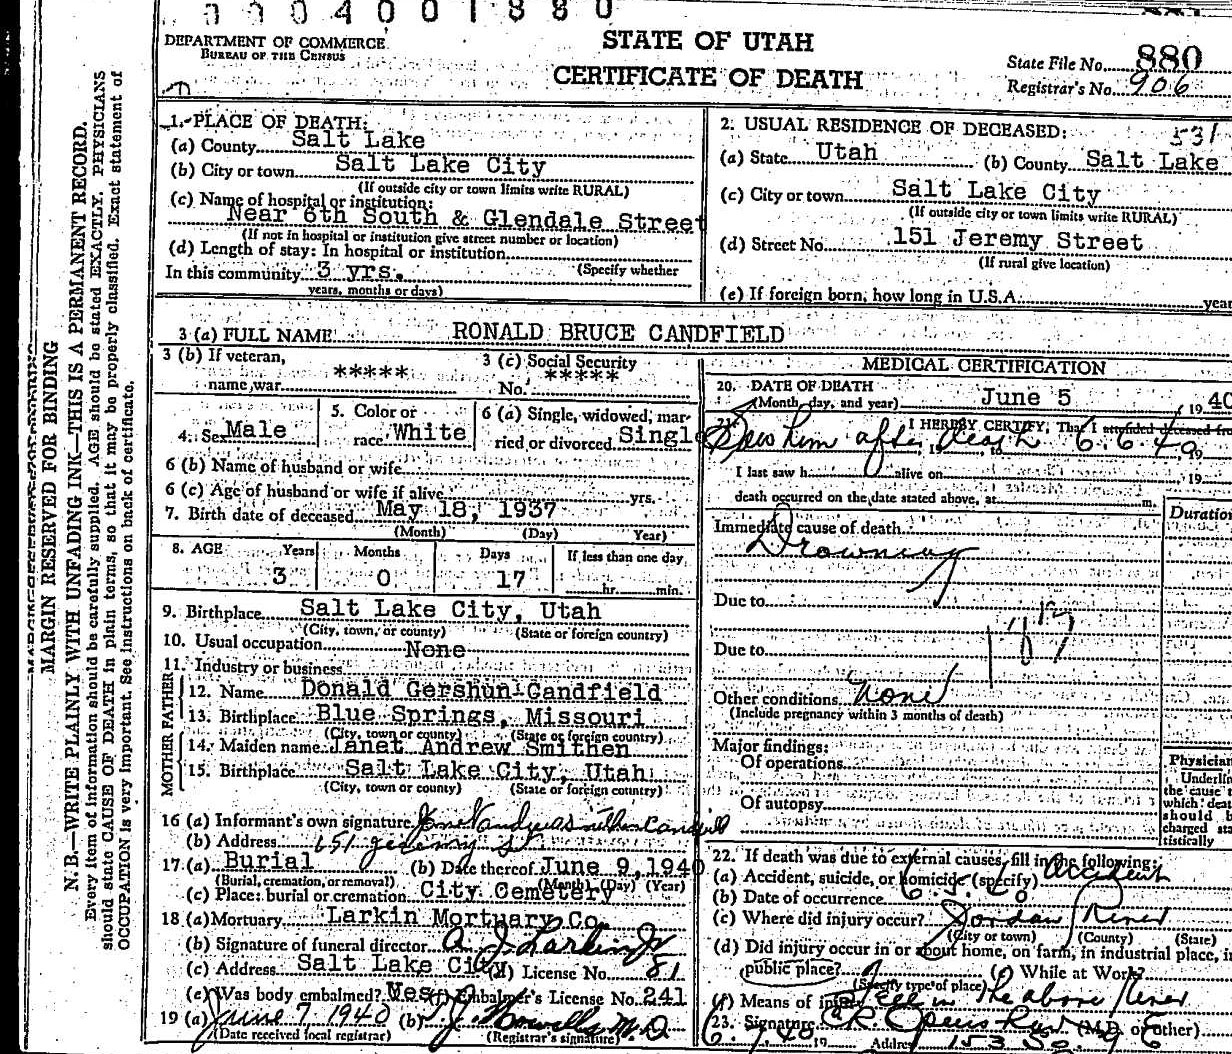 0004001880
DEPARTMENT OF COMMERCE
BUREAU OF THE CENSUS
STATE OF UTAH
CERTIFICATE OF DEATH
State File No. 880
Registrar's No. 906
1. PLACE OF DEATH:
(a) County Salt Lake
(b) City or town Salt Lake City
(If outside city or town limits write RURAL)
(c) Name of hospital or institution:
Near 6th South & Glendale Street
(If not in hospital or institution give street number or location)
(d) Length of stay: In hospital or institution
(Specify whether
In this community 3 yrs.
years, months or days)
2. USUAL RESIDENCE OF DECEASED:
531
(a) State Utah (b) County Salt Lake
(c) City or town Salt Lake City
(If outside city or town limits write RURAL)
(d) Street No. 151 Jeremy Street
(If rural give location)
(e) If foreign born, how long in U.S.A. year
3 (a) FULL NAME RONALD BRUCE CANDFIELD
3 (b) If veteran,
name war *****
3 (c) Social Security
No. *****
4. Sex Male
5. Color or
race White
6 (a) Single, widowed, mar-
ried or divorced Singl
6 (b) Name of husband or wife
6 (c) Age of husband or wife if alive yrs.
7. Birth date of deceased May 18, 1937
(Month) (Day) Year)
8. AGE Years Months Days If less than one day
3 0 17 hr. min.
9. Birthplace Salt Lake City, Utah
(City, town, or county) (State or foreign country)
10. Usual occupation None
11. Industry or business
FATHER
12. Name Donald Gershuni Candfield
13. Birthplace Blue Springs, Missouri
(City, town or county) (State or foreign country)
MOTHER
14. Maiden name Janet Andrew Smithen
15. Birthplace Salt Lake City, Utah
(City, town or county) (State or foreign country)
16 (a) Informant's own signature
(b) Address 151 Jeremy St
17. (a) Burial (b) Date thereof June 9, 1940
(Burial, cremation, or removal) (Month) (Day) (Year)
(c) Place: burial or cremation City Cemetery
18 (a) Mortuary Larkin Mortuary Co.
(b) Signature of funeral director A J Larkin Jr
(c) Address Salt Lake City (d) License No. 81
(e) Was body embalmed? Yes (f) Embalmer's License No. 241
19 (a) June 7 1940 (b) Howells M.D
(Date received local registrar) (Registrar's signature)
MEDICAL CERTIFICATION
20. DATE OF DEATH
(Month, day, and year) June 5, 1940
21. I HEREBY CERTIFY, That I attended deceased from
him after death 6.6.40
I last saw h alive on , 19
death occurred on the date stated above, at m.
Duration
Immediate cause of death
Drowning
Due to
Due to
Other conditions None
(Include pregnancy within 3 months of death)
Major findings:
Of operations
Of autopsy
Physician
Underli
the cause t
which deat
should b
charged sta
tistically
22. If death was due to external causes, fill in the following:
(a) Accident, suicide, or homicide (specify) Accident
(b) Date of occurrence
(c) Where did injury occur? Jordan River
(City or town) (County) (State)
(d) Did injury occur in or about home, on farm, in industrial place, in
public place? (e) While at Work?
(Specify type of place)
(f) Means of injury Fell in the above River
23. Signature (M.D. or other)
Address
MARGIN RESERVED FOR BINDING
N. B.—WRITE PLAINLY WITH UNFADING INK—THIS IS A PERMANENT RECORD.
Every item of information should be carefully supplied. AGE should be stated EXACTLY. PHYSICIANS
should state CAUSE OF DEATH in plain terms, so that it may be properly classified. Exact statement of
OCCUPATION is very important. See instructions on back of certificate.